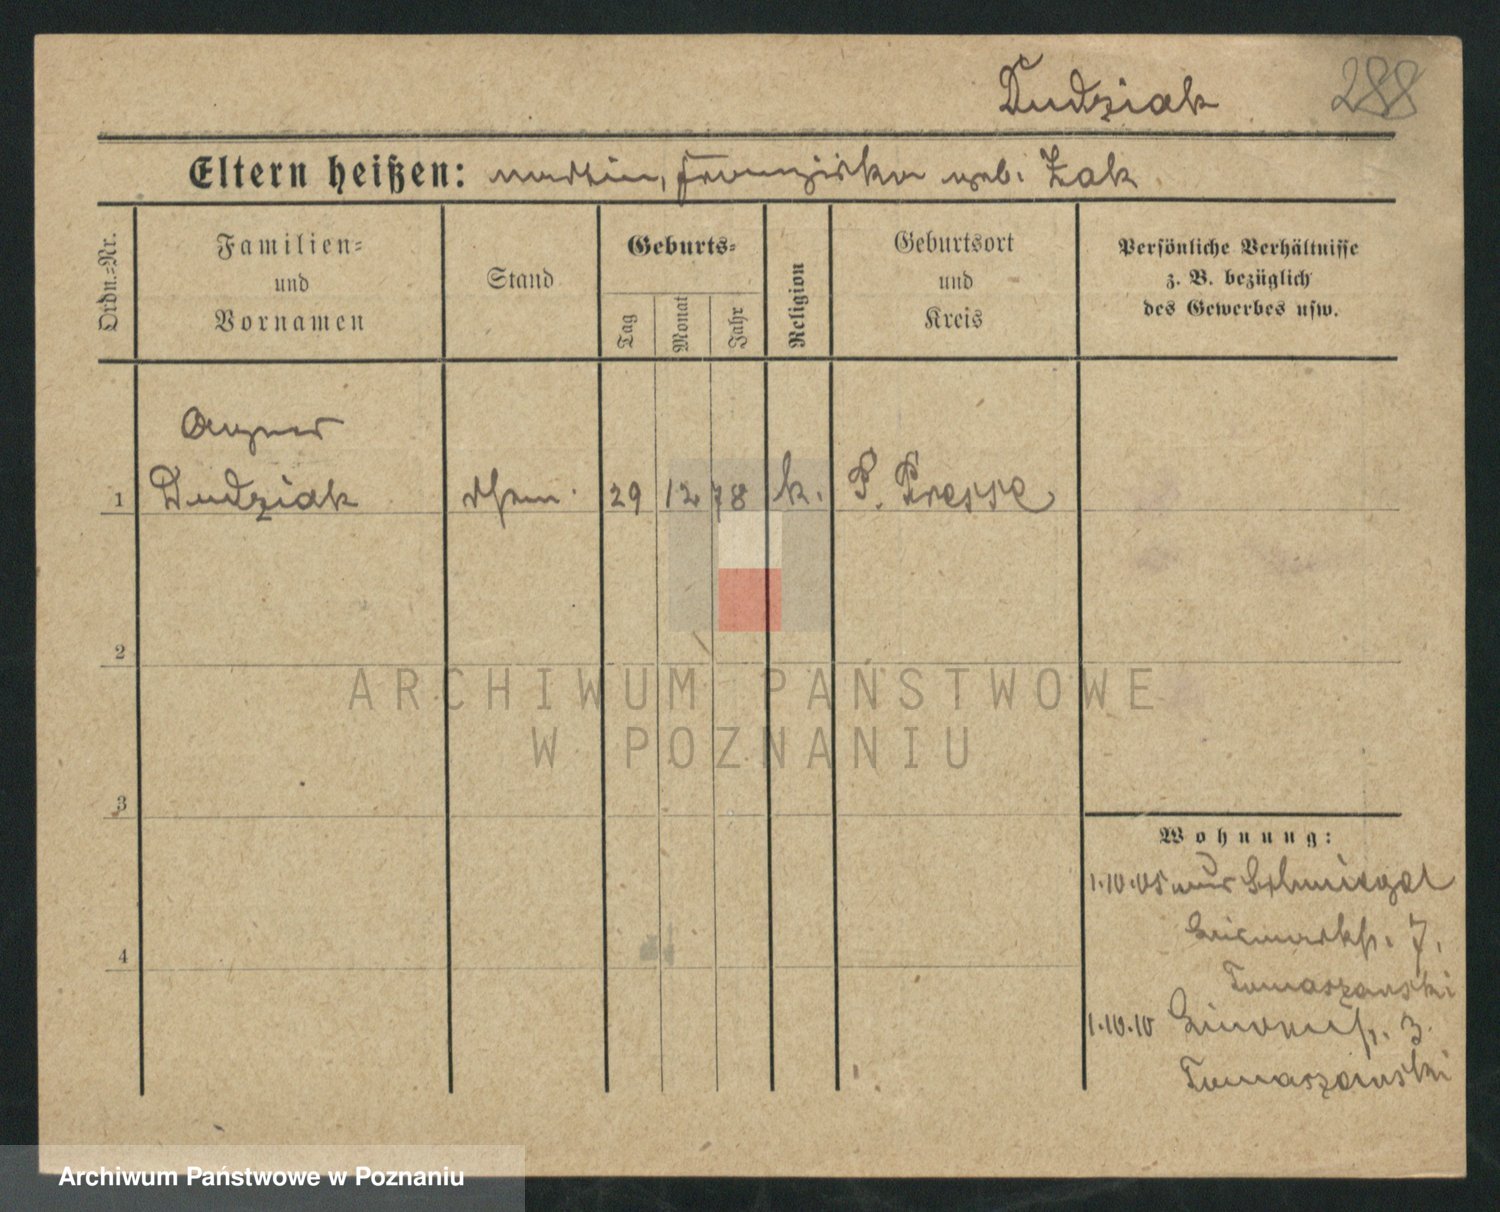 Dudziak 288
Eltern heißen: Martin, Franziska geb. Zak
Ordn.=Nr.
Familien=
und
Vornamen
Stand
Geburts=
Tag
Monat
Jahr
Religion
Geburtsort
und
Kreis
Persönliche Verhältnisse
z. B. bezüglich
des Gewerbes usw.
1 Dudziak 29 12 78 k. P. Presse
2
3
4
Wohnung:
1.10.05 aus Schmiegel
Bismarckstr. 7.
Tomaszewski
1.10.10 3.
Tomaszewski
ARCHIWUM PAŃSTWOWE
W POZNANIU
Archiwum Państwowe w Poznaniu